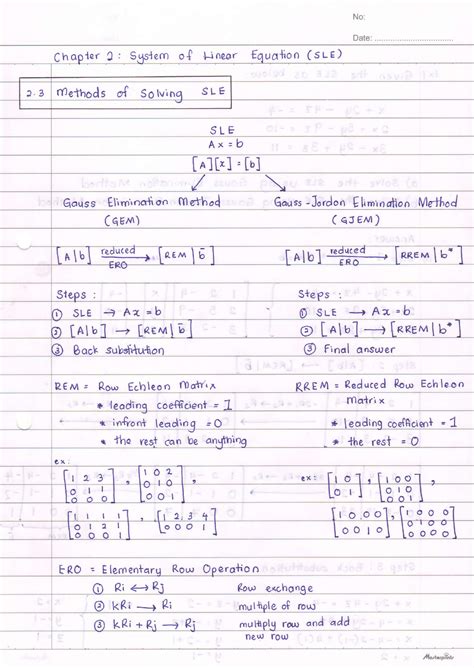 No:
Date:
Chapter 2: System of Linear Equation (SLE)
2.3 Methods of Solving SLE
SLE
Ax = b
[A][x] = [b]
Gauss Elimination Method
(GEM)
Gauss-Jordon Elimination Method
(GJEM)
[A|b] reduced ERO → [REM | b̄]
[A|b] reduced ERO → [RREM | b*]
Steps :
① SLE → Ax = b
② [A|b] → [REM | b̄]
③ Back substitution
Steps :
① SLE → Ax = b
② [A|b] → [RREM | b*]
③ Final answer
REM = Row Echleon Matrix
* leading coefficient = 1
* infront leading = 0
* the rest can be anything
RREM = Reduced Row Echleon
Matrix
* leading coefficient = 1
* the rest = 0
ex:
[1 2 3
0 1 0
0 0 1] , [1 0 2
0 1 0
0 0 0]
[1 1 1 1
0 1 2 1
0 0 0 0] , [1 2 3 4
0 0 0 1]
ex:
[1 0
0 1] , [1 0 0
0 1 0
0 0 1]
[1 0 0 0
0 0 1 0] , [1 0 0
0 0 0
0 0 0]
ERO = Elementary Row Operation
① Ri ↔ Rj Row exchange
② kRi → Ri multiple of row
③ kRi + Rj → Rj multiply row and add
new row